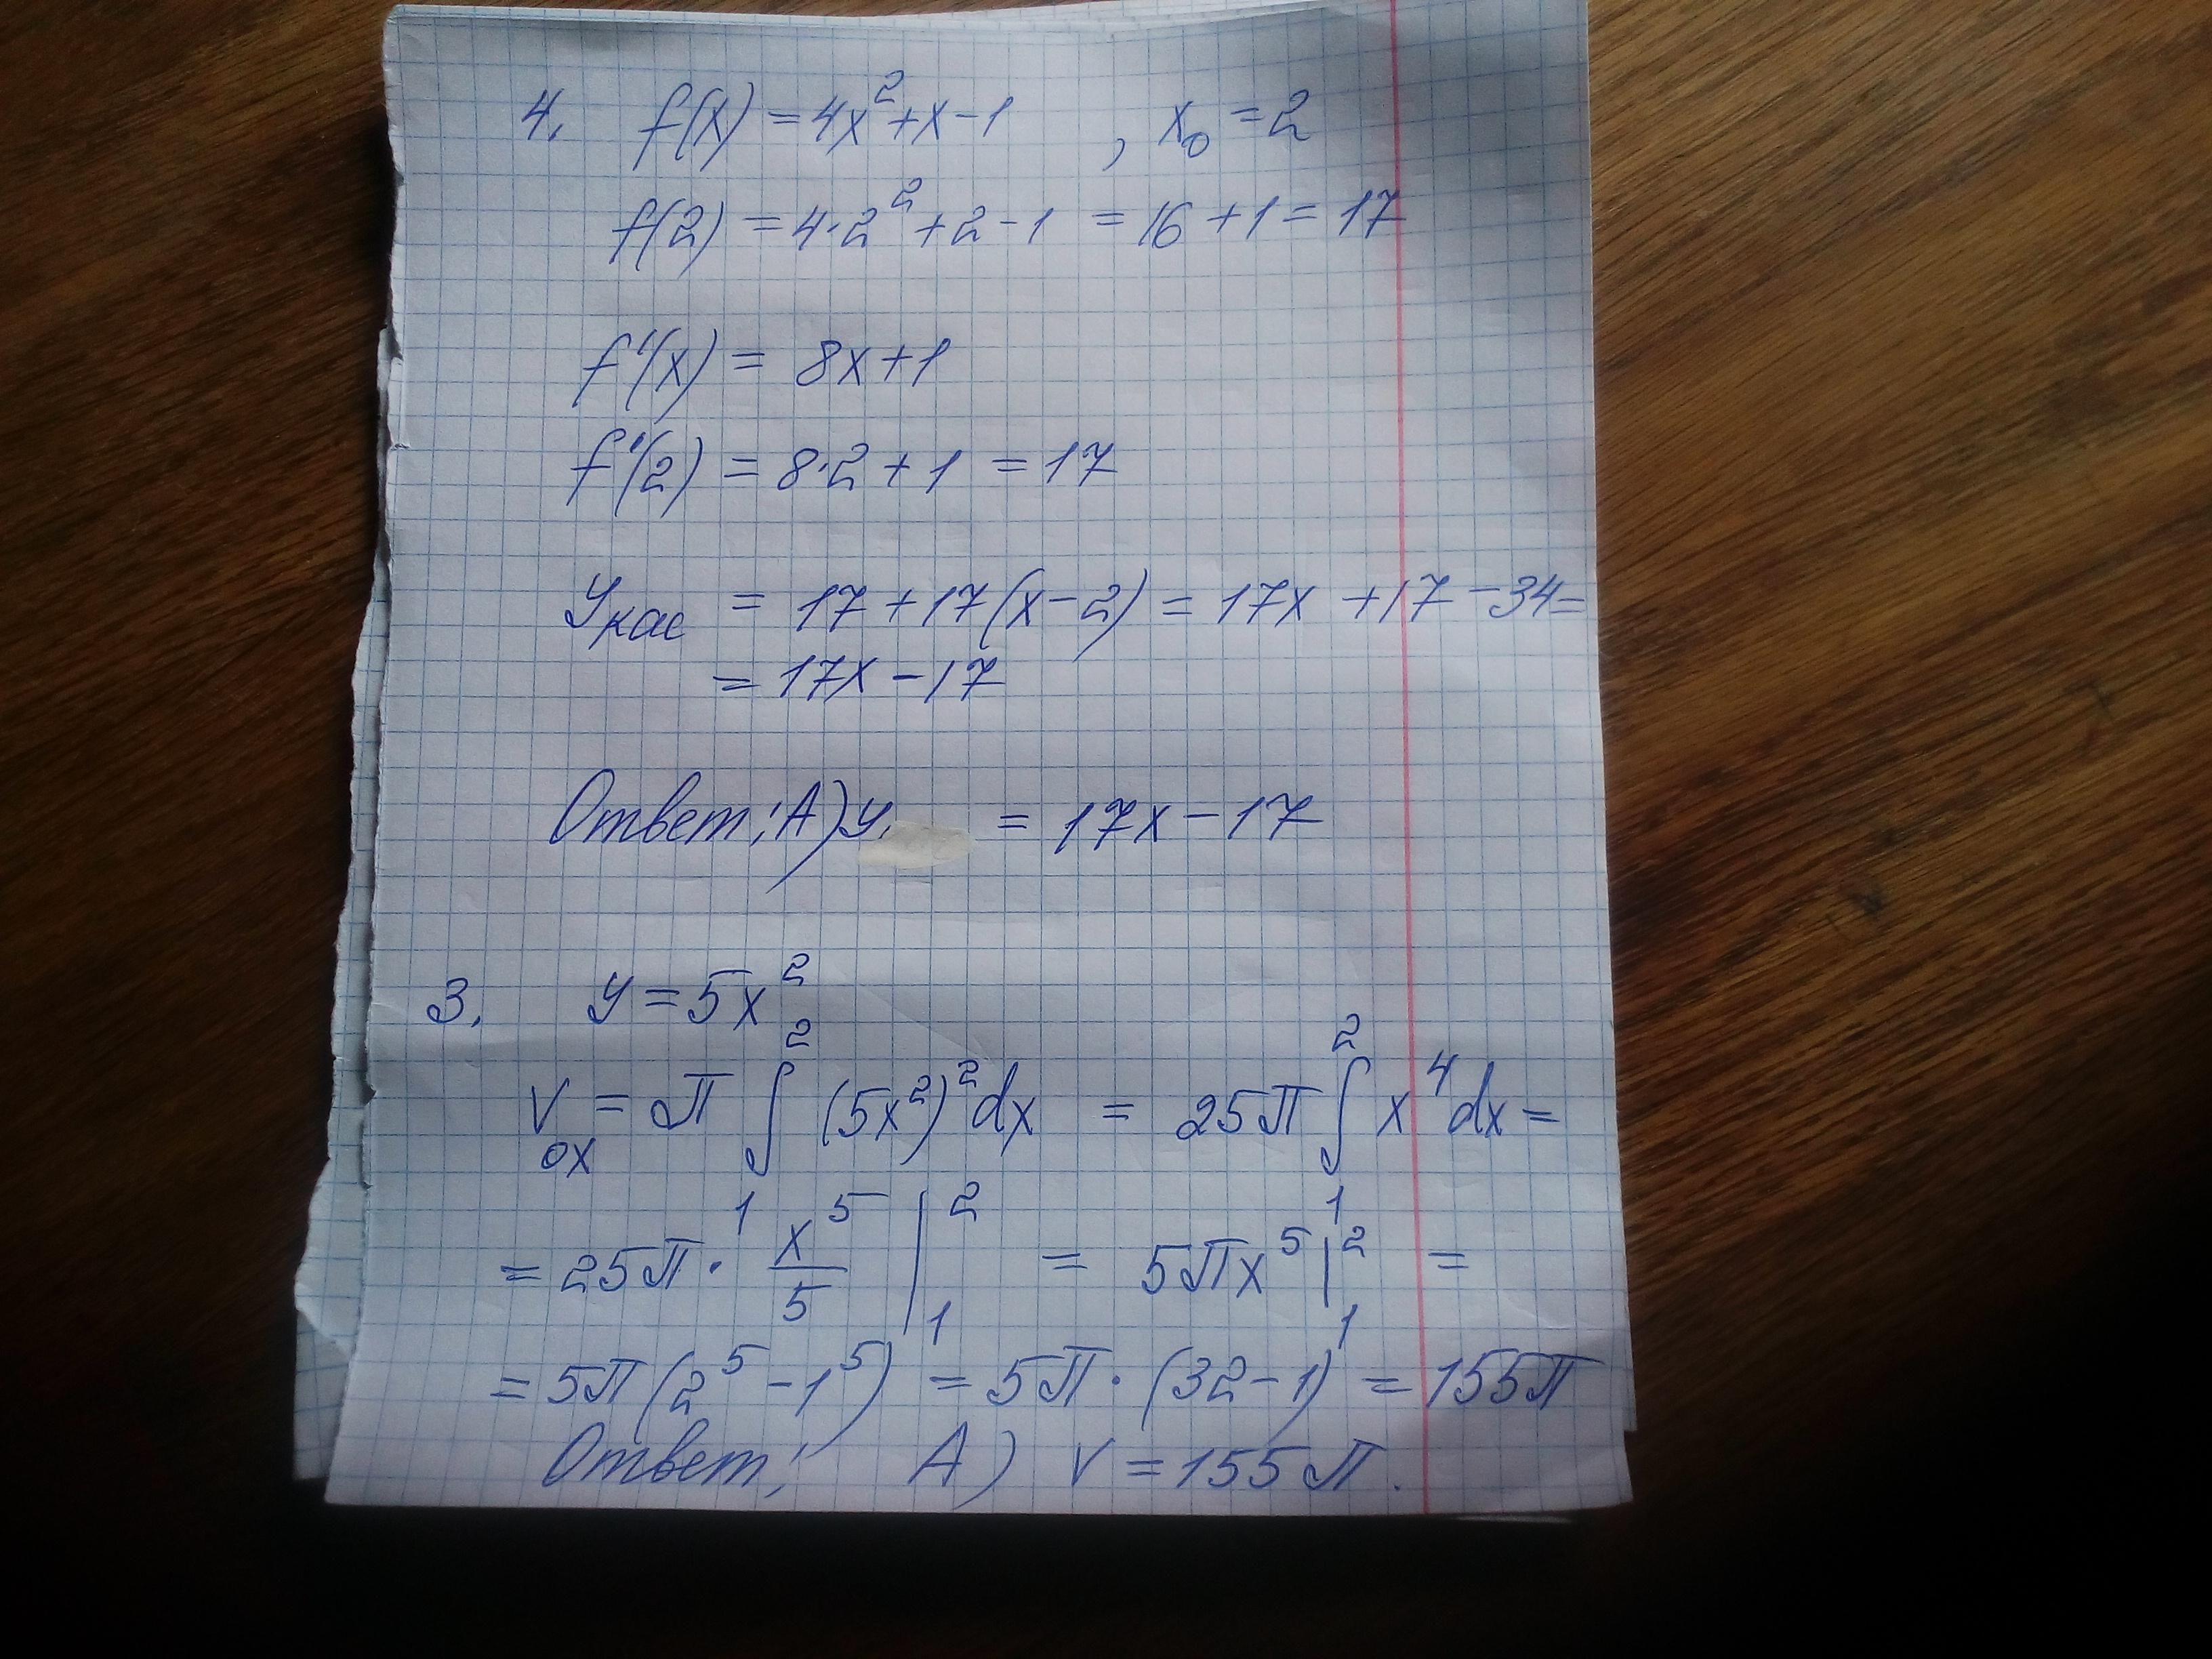 4. f(x) = 4x²+x-1 , x₀ = 2
f(2) = 4·2²+2-1 = 16+1 = 17
f'(x) = 8x+1
f'(2) = 8·2+1 = 17
Yкас = 17+17(x-2) = 17x+17-34=
= 17x-17
Ответ: А) y = 17x-17
3. y = 5x²
Vox = π∫₁² (5x²)²dx = 25π∫₁² x⁴dx =
= 25π · x⁵/5 |₁² = 5πx⁵|₁² =
= 5π(2⁵-1⁵) = 5π·(32-1) = 155π
Ответ: А) V = 155π.